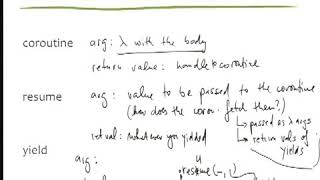 coroutine arg: λ with the body
return value: handle to coroutine
resume arg: value to be passed to the coroutine
(how does the corou. fetch them?)
↳ passed as λ args
ret val: whatever you yielded
↳ return vals of yields
yield arg:
resume(-, 1)